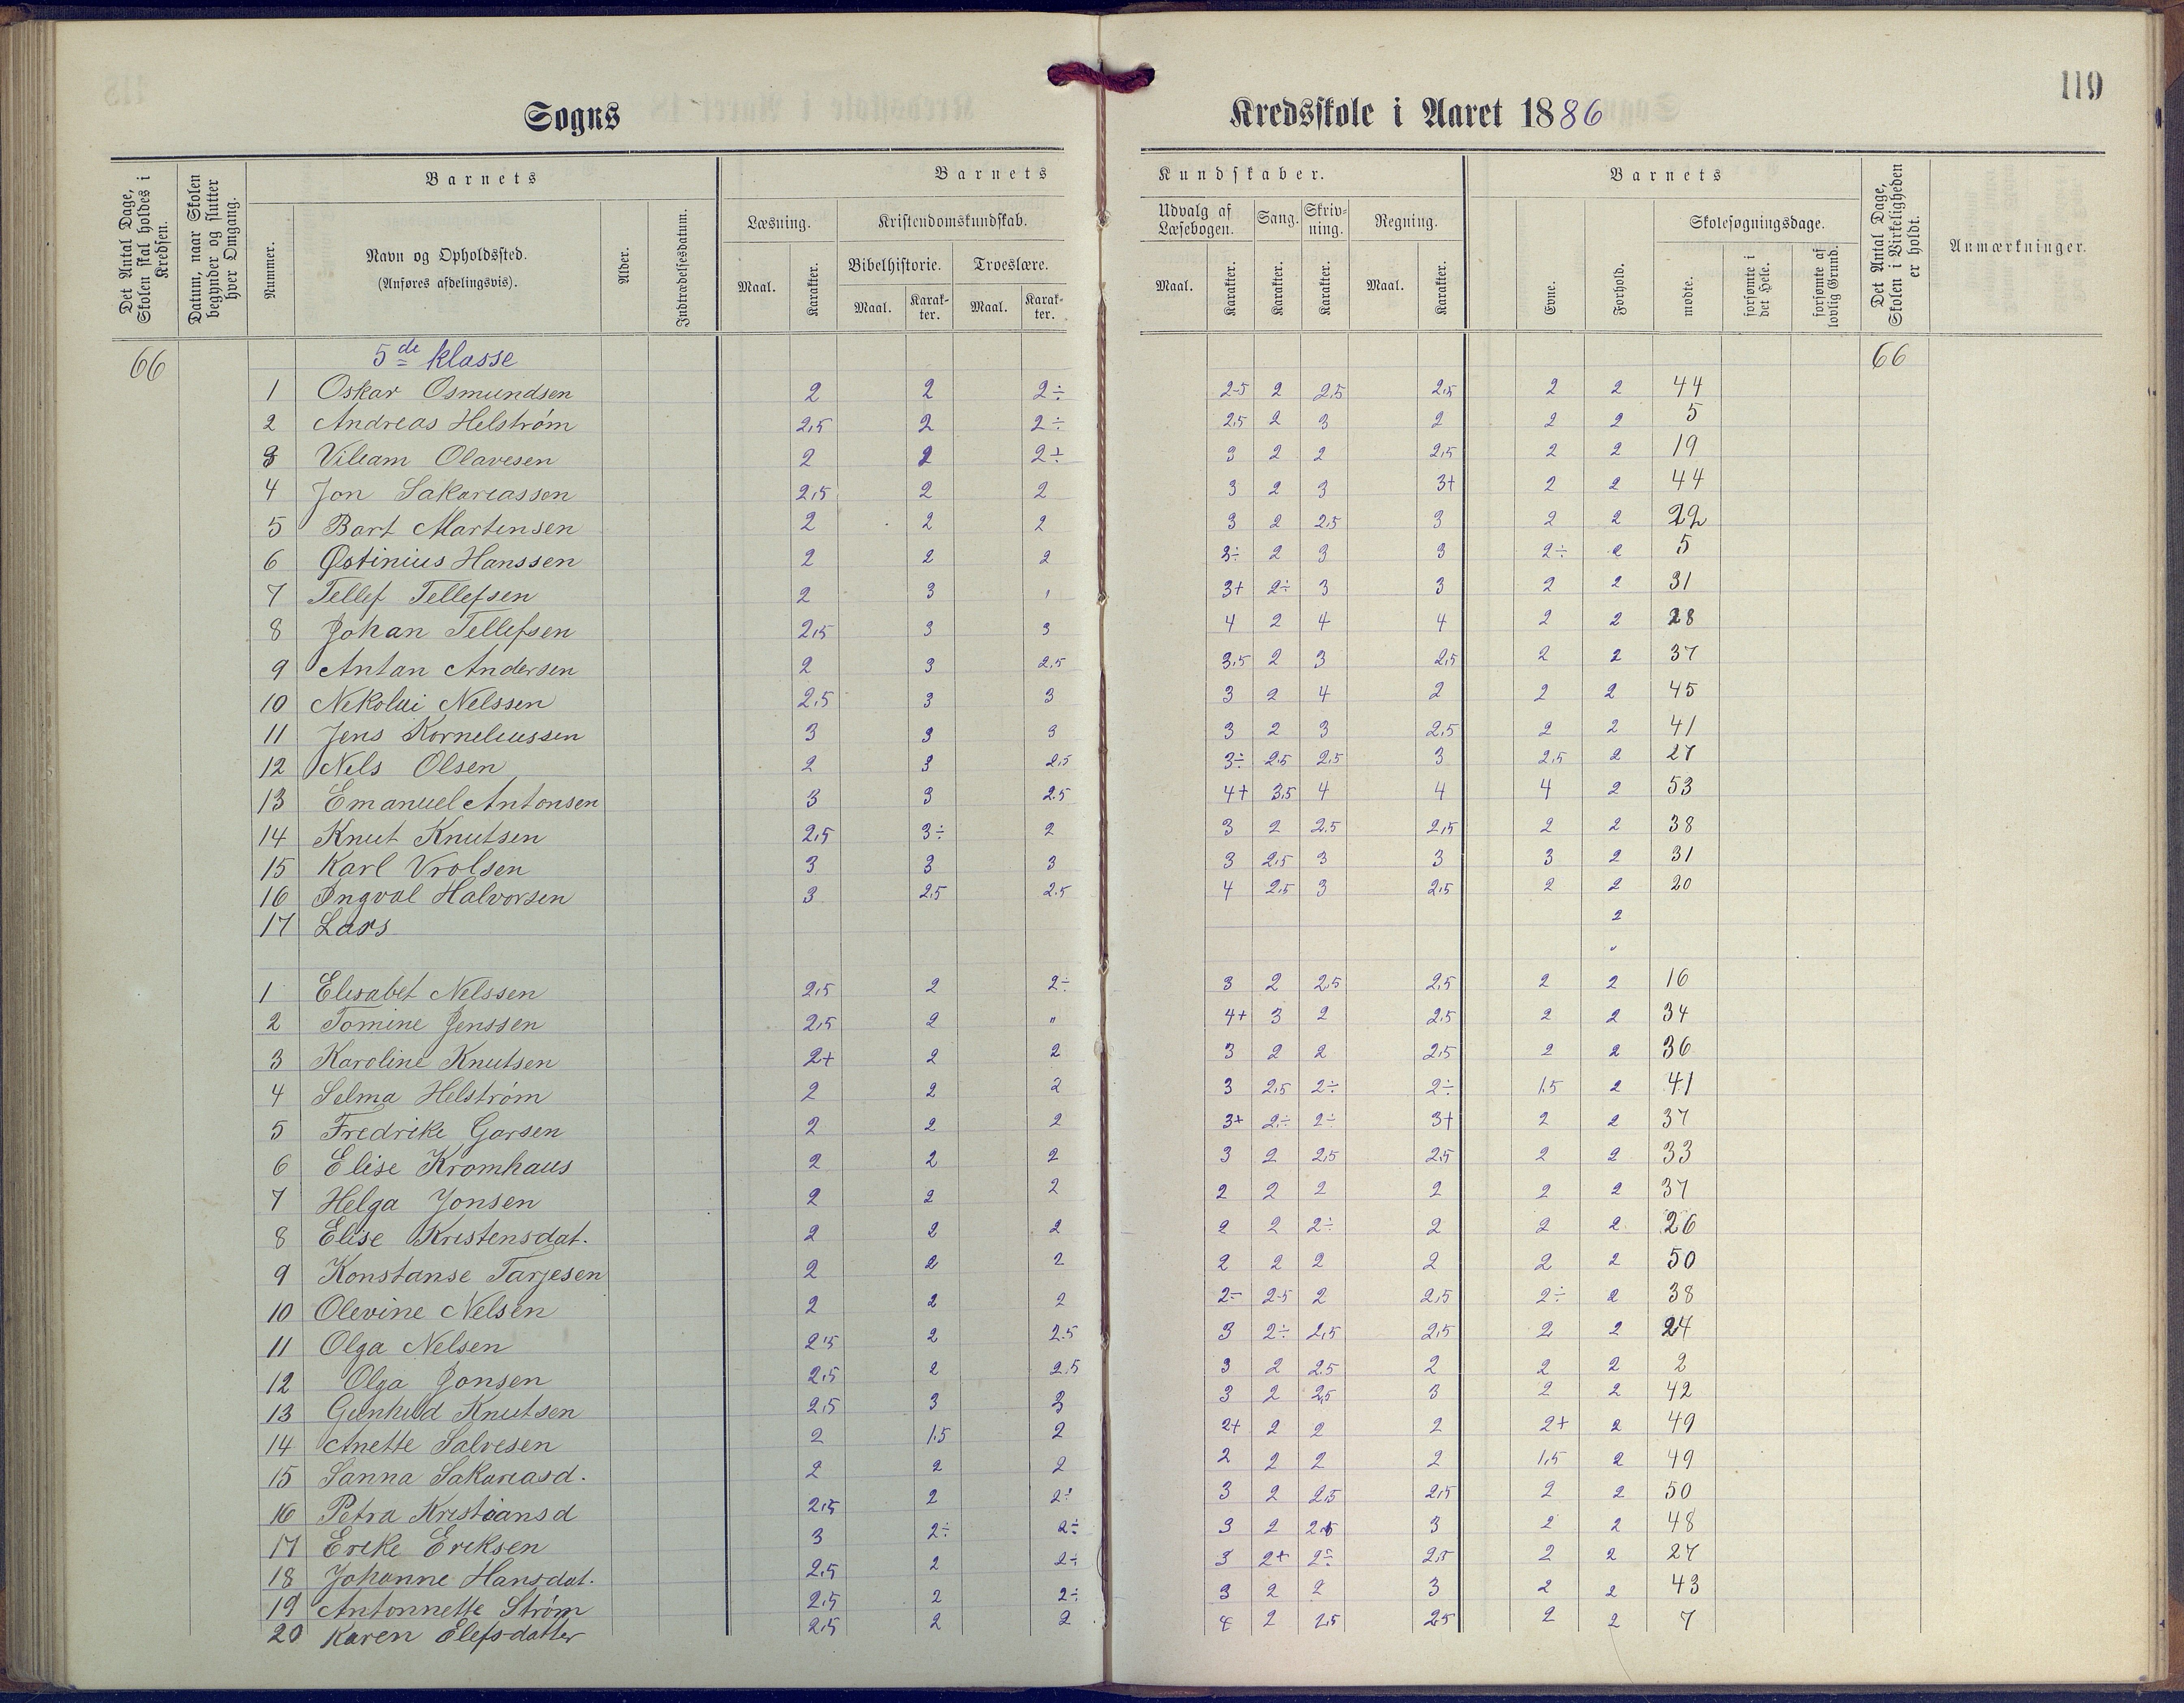 119
Sogns Kredsskole i Aaret 1886
Det Antal Dage, Skolen skal holdes i Kredsen.
Datum, naar Skolen begynder og slutter hver Omgang.
Barnets
Nummer.
Navn og Opholdssted.
(Anføres afdelingsvis).
Alder.
Indtrædelsesdatum.
Barnets Kundskaber.
Læsning. Kristendomskundskab. Udvalg af Læsebogen. Sang. Skrivning. Regning.
Bibelhistorie. Troeslære.
Maal. Karakter. Maal. Karakter. Maal. Karakter. Maal. Karakter. Karakter. Karakter. Maal. Karakter.
Barnets
Evne. Forhold. Skolesøgningsdage.
mødte. forsømte i det Hele. forsømte af lovlig Grund.
Det Antal Dage, Skolen i Virkeligheden er holdt.
Anmærkninger.
66 5de klasse 66
1 Oskar Osmundsen 2 2 2÷ 2-5 2 2,5 2,5 2 2 44
2 Andreas Helstrøm 2,5 2 2÷ 2,5 2 3 2 2 2 5
3 Viliam Olavesen 2 2 2÷ 3 2 2 2,5 2 2 19
4 Jon Sakariassen 2,5 2 2 3 2 3 3+ 2 2 44
5 Bart Martinsen 2 2 2 3 2 2,5 3 2 2 22
6 Østinius Hanssen 2 2 2 3÷ 2 3 3 2÷ 2 5
7 Tellef Tellefsen 2 3 3+ 2÷ 3 3 2 2 31
8 Johan Tellefsen 2,5 3 3 4 2 4 4 2 2 28
9 Antan Andersen 2 3 2,5 3,5 2 3 2,5 2 2 37
10 Nekolai Nelssen 2,5 3 3 3 2 4 2 2 2 45
11 Jens Korneliussen 3 3 3 3 2 3 2,5 2 2 41
12 Nels Olsen 2 3 2,5 3÷ 2,5 2,5 3 2,5 2 27
13 Emanuel Antonsen 3 3 2.5 4+ 3,5 4 4 4 2 53
14 Knut Knutsen 2,5 3÷ 2 3 2 2.5 2,5 2 2 38
15 Karl Vrolsen 3 3 3 3 2,5 3 3 3 2 31
16 Ingval Halvorsen 3 2,5 2.5 4 2,5 3 2,5 2 2 20
17 Lars 2
"
1 Elisabet Nelssen 2,5 2 2÷ 3 2 2,5 2,5 2 2 16
2 Tomine Jenssen 2,5 2 " 4+ 3 2 2,5 2 2 34
3 Karoline Knutsen 2+ 2 2 3 2 2 2,5 2 2 36
4 Selma Helstrøm 2 2 2 3 2,5 2÷ 2÷ 1,5 2 41
5 Fredrike Garsen 2 2 2 3+ 2÷ 2÷ 3+ 2 2 37
6 Elise Kromhaus 2 2 2 3 2 2,5 2,5 2 2 33
7 Helga Jonsen 2 2 2 2 2 2 2 2 2 37
8 Elise Kristensdat. 2 2 2 2 2 2÷ 2 2 2 26
9 Konstanse Tarjesen 2 2 2 2 2 2 2 2 2 50
10 Olevine Nelsen 2 2 2 2÷ 2-5 2 2,5 2÷ 2 38
11 Olga Nelsen 2,5 2 2.5 3 2÷ 2,5 2,5 2 2 24
12 Olga Jonsen 2,5 2 2,5 3 2 2.5 2 2 2 2
13 Gunhild Knutsen 2,5 3 3 3 2 2,5 3 2 2 42
14 Anette Salvesen 2 1.5 2 2+ 2 2 2 2+ 2 49
15 Sanna Sakariasd. 2 2 2 2 2 2 2 1,5 2 49
16 Petra Kristiansd 2,5 2 2÷ 3 2 2,5 2,5 2 2 50
17 Ereke Ereksen 3 2÷ 2÷ 3 2 2,5 3 2 2 48
18 Johanne Hansdat. 2,5 2 2÷ 3 2+ 2÷ 2,5 2 2 27
19 Antonnette Strøm 2,5 2 2÷ 3 2 2 3 2 2 43
20 Karen Elefsdatter 2,5 2 2 4 2 2,5 2,5 2 2 7